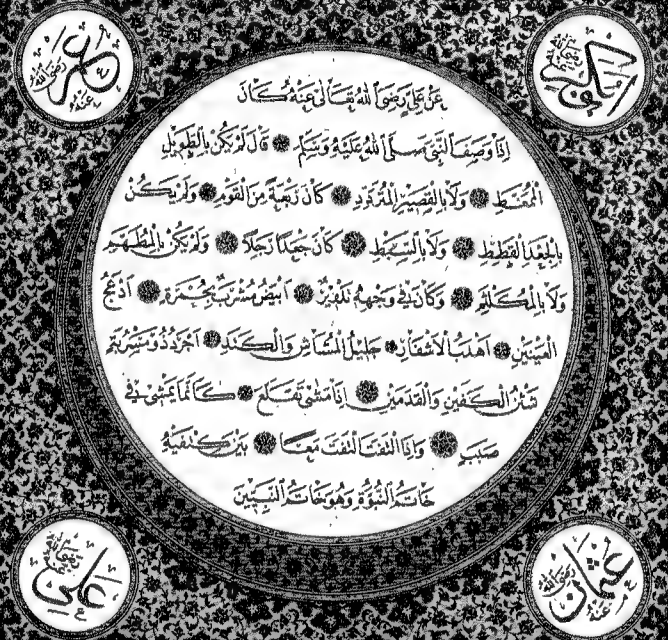 ابو بكر رضي الله تعالى عنه
عمر رضي الله عنه
عَنْ عَلِيٍّ رَضِيَ اللهُ تَعَالَى عَنْهُ كَانَ
اِذَا وَصَفَ النَّبِيَّ صَلَّى اللهُ عَلَيْهِ وَسَلَّمَ قَالَ لَمْ يَكُنْ بِالطَّوِيلِ
الْمُمَّغِطِ وَلَا بِالْقَصِيرِ الْمُتَرَدِّدِ كَانَ رَبْعَةً مِنَ الْقَوْمِ وَلَمْ يَكُنْ
بِالْجَعْدِ الْقَطِطِ وَلَا بِالسَّبِطِ كَانَ جَعْدًا رَجِلًا وَلَمْ يَكُنْ بِالْمُطَهَّمِ
وَلَا بِالْمُكَلْثَمِ وَكَانَ فِي وَجْهِهِ تَدْوِيرٌ اَبْيَضُ مُشْرَبٌ بِحُمْرَةٍ اَدْعَجُ
الْعَيْنَيْنِ اَهْدَبُ الْاَشْفَارِ جَلِيلُ الْمُشَاشِ وَالْكَتَدِ اَجْرَدُ ذُو مَسْرُبَةٍ
شَثْنُ الْكَفَّيْنِ وَالْقَدَمَيْنِ اِذَا مَشَى تَقَلَّعَ كَاَنَّمَا يَمْشِي فِي
صَبَبٍ وَاِذَا الْتَفَتَ الْتَفَتَ مَعًا بَيْنَ كَتِفَيْهِ
خَاتَمُ النُّبُوَّةِ وَهُوَ خَاتَمُ النَّبِيِّينَ
عثمان رضي الله عنه
علي رضي الله تعالى عنه